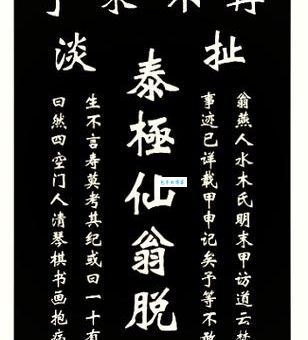 再不来了
扯淡
翁燕人水木氏明末甲访道云梦
事迹已详载甲申记矣予等不敢
泰極仙翁脱
生不言寿莫考其纪或曰一十有
曰然四空门人清琴棋书画抱病